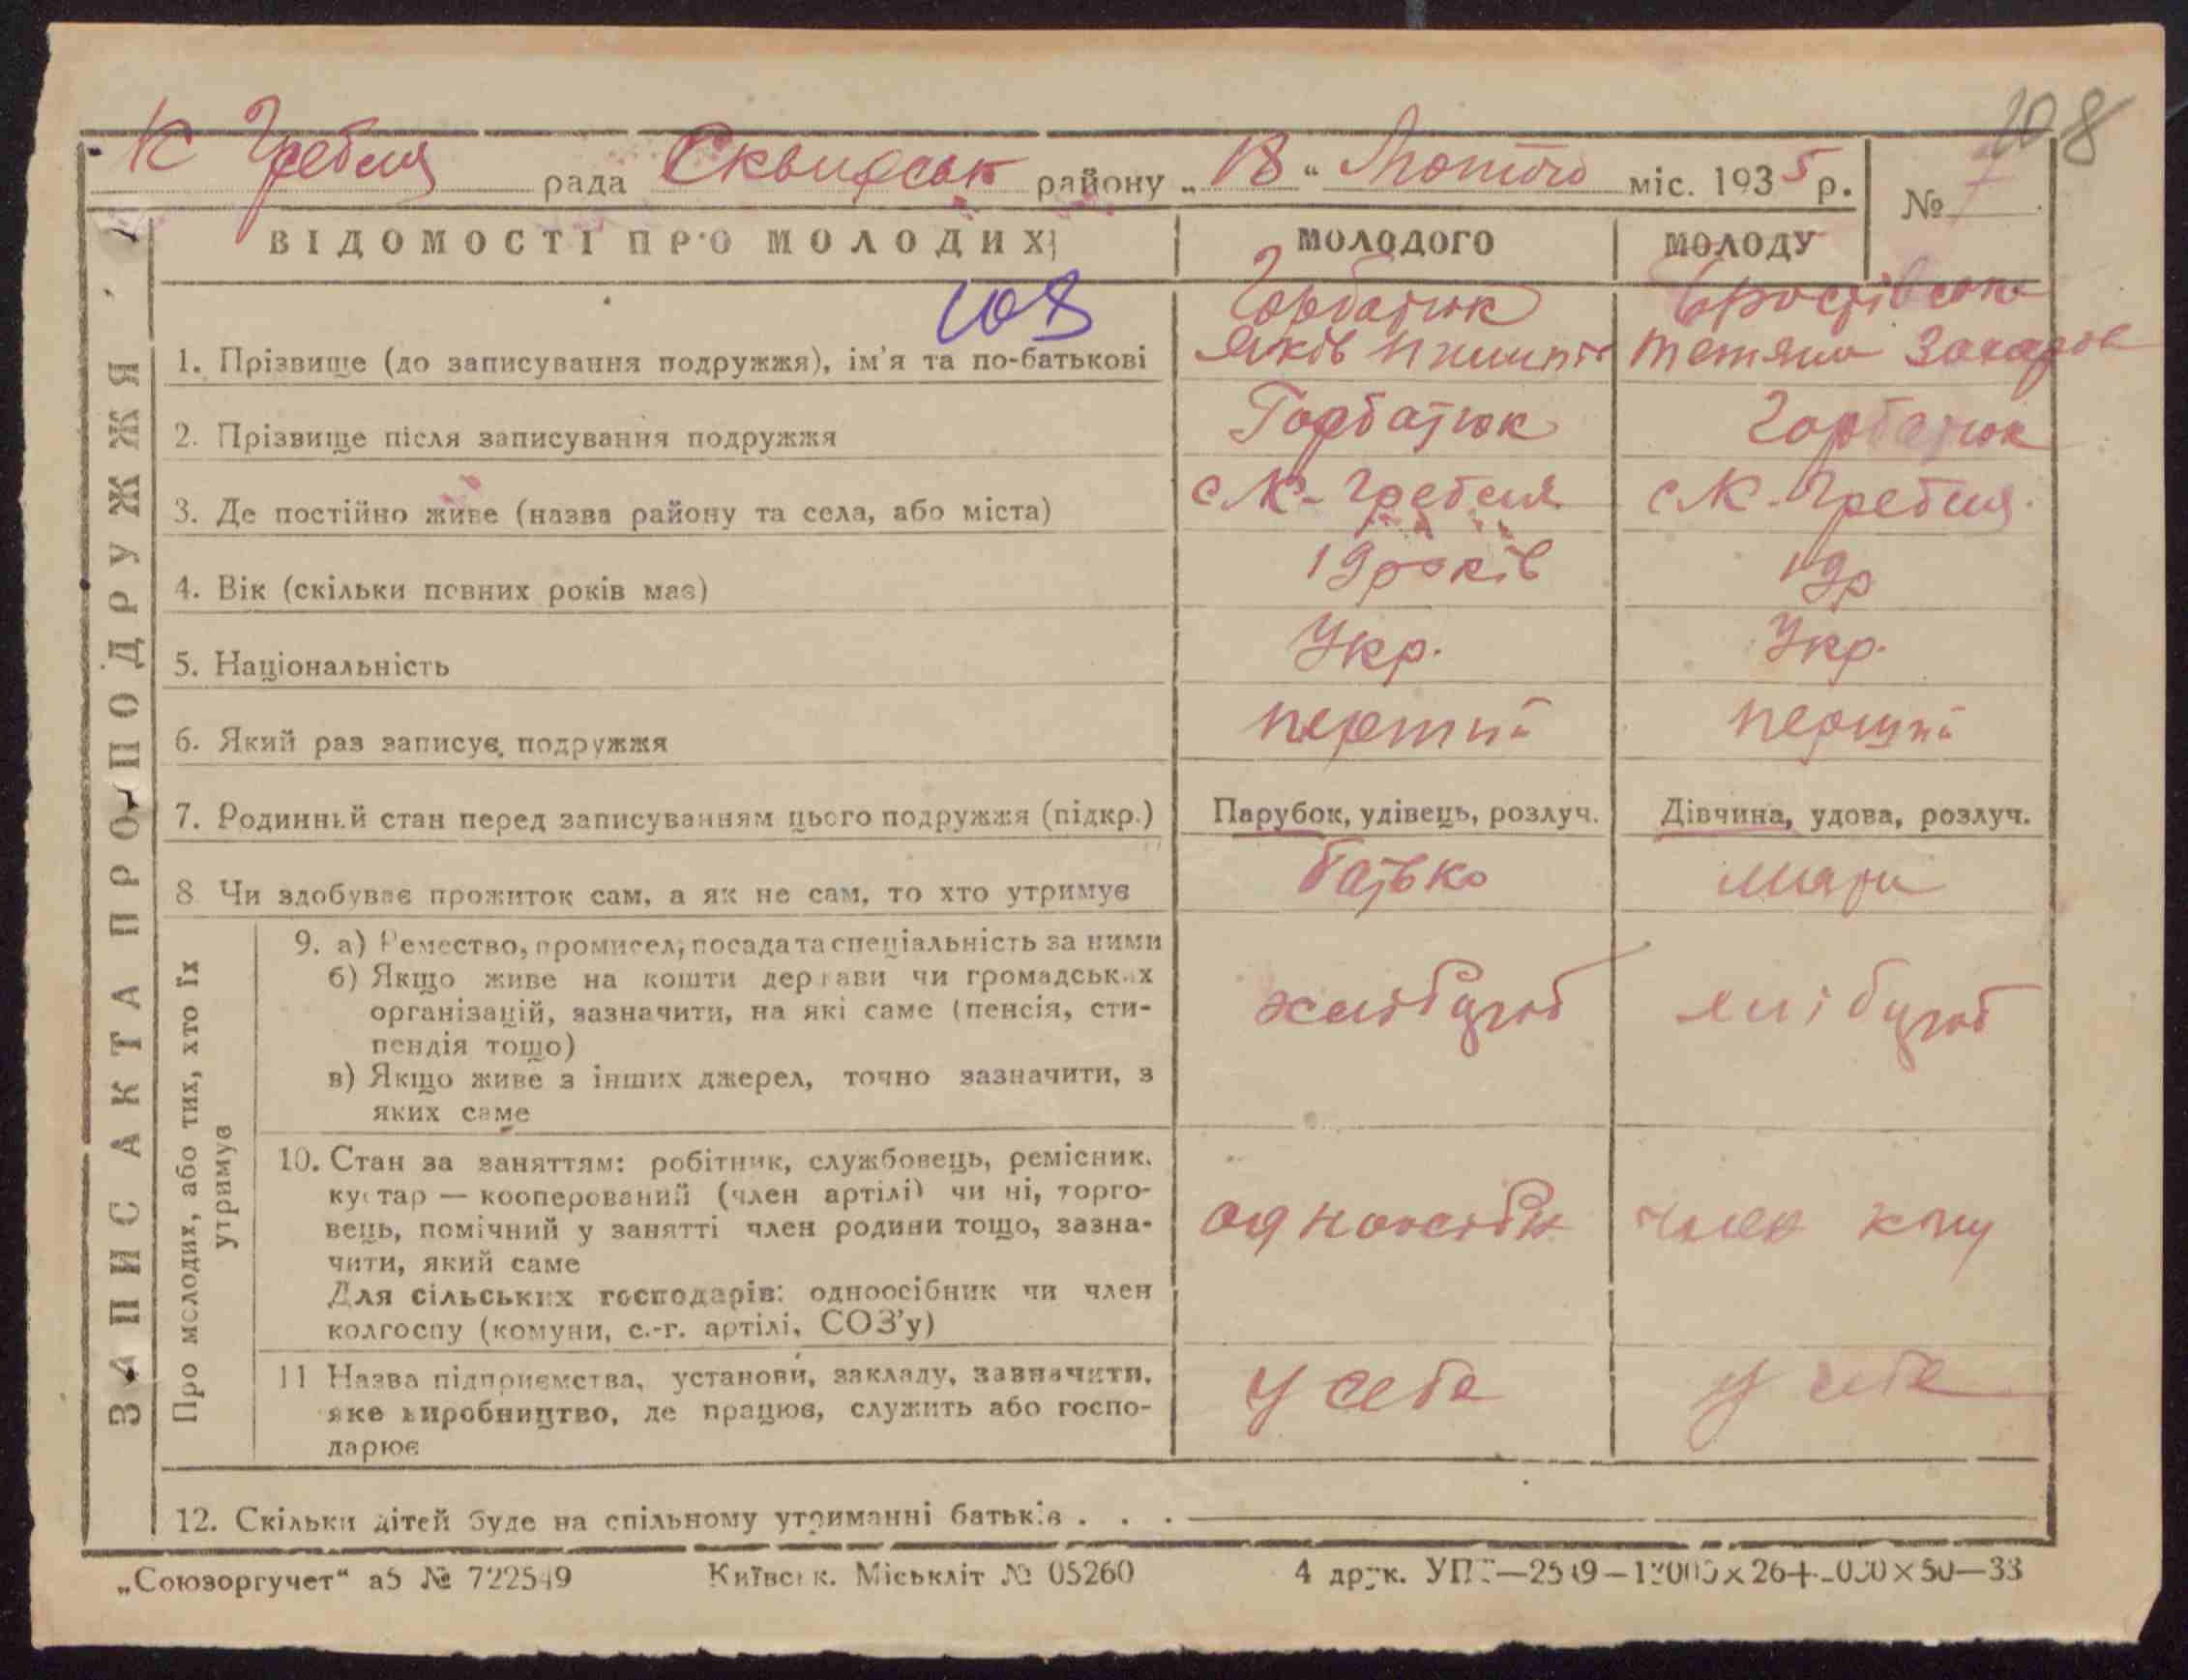 108
К Гребля рада Сквирськ району „18“ Лютого міс. 1935 р. № 7
ВІДОМОСТІ ПРО МОЛОДИХ
МОЛОДОГО
МОЛОДУ
108
Горбатюк
1. Прізвище (до записування подружжя), ім'я та по-батькові
Яків
Тетяна Захаров
2. Прізвище після записування подружжя
Горбатюк
Горбатюк
3. Де постійно живе (назва району та села, або міста)
с К-Гребля
с К-Гребля.
4. Вік (скільки повних років має)
19 років
19 р
5. Національність
Укр.
Укр.
6. Який раз записує подружжя
перший
перший
7. Родинний стан перед записуванням цього подружжя (підкр.)
Парубок, удівець, розлуч.
Дівчина, удова, розлуч.
8 Чи здобуває прожиток сам, а як не сам, то хто утримує
батько
мати
9. а) Ремество, промисел, посада та спеціальність за ними
б) Якщо живе на кошти держави чи громадських
організацій, зазначити, на які саме (пенсія, сти-
пендія тощо)
в) Якщо живе з інших джерел, точно зазначити, з
яких саме
хлібороб
хлібороб
10. Стан за заняттям: робітник, службовець, ремісник,
кустар — кооперований (член артілі) чи ні, торго-
вець, помічний у занятті член родини тощо, зазна-
чити, який саме
Для сільських господарів: одноосібник чи член
колгоспу (комуни, с.-г. артілі, СОЗ'у)
член
11 Назва підприємства, установи, закладу, зазначити,
яке виробництво, де працює, служить або госпо-
дарює
у себе
у себе
12. Скільки дітей буде на спільному утриманні батьків . . .
ЗАПИС АКТА ПРО ПОДРУЖЖЯ
Про молодих, або тих, хто їх
утримує
„Союзоргучет“ а5 № 722549
Київськ. Міськліт № 05260
4 друк.